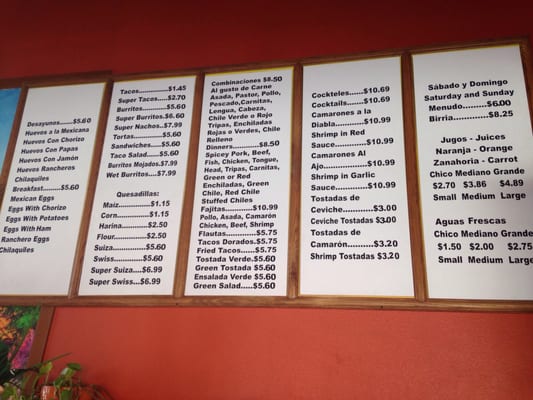 Desayunos.....$5.60
Huevos a la Mexicana
Huevos Con Chorizo
Huevos Con Papas
Huevos Con Jamón
Huevos Rancheros
Chilaquiles
Breakfast.....$5.60
Mexican Eggs
Eggs With Chorizo
Eggs With Potatoes
Eggs With Ham
Ranchero Eggs
Chilaquiles
Tacos...........$1.45
Super Tacos.....$2.70
Burritos.....$5.60
Super Burritos.$6.60
Super Nachos..$7.99
Tortas.......$5.60
Sandwiches.....$5.60
Taco Salad......$5.60
Burritos Mojados.$7.99
Wet Burritos....$7.99
Quesadillas:
Maíz.............$1.15
Corn.............$1.15
Harina..........$2.50
Flour............$2.50
Suiza............$5.60
Swiss............$5.60
Super Suiza....$6.99
Super Swiss...$6.99
Combinaciones $8.50
Al gusto de Carne
Asada, Pastor, Pollo,
Pescado,Carnitas,
Lengua, Cabeza,
Chile Verde o Rojo
Tripas, Enchiladas
Rojas o Verdes, Chile
Relleno
Dinners.........$8.50
Spicey Pork, Beef,
Fish, Chicken, Tongue,
Head, Tripas, Carnitas,
Green or Red
Enchiladas, Green
Chile, Red Chile
Stuffed Chiles
Fajitas.........$10.99
Pollo, Asada, Camarón
Chicken, Beef, Shrimp
Flautas..........$5.75
Tacos Dorados.$5.75
Fried Tacos.....$5.75
Tostada Verde.$5.60
Green Tostada $5.60
Ensalada Verde $5.60
Green Salad.....$5.60
Cockteles......$10.69
Cocktails.......$10.69
Camarones a la
Diabla...........$10.99
Shrimp in Red
Sauce...........$10.99
Camarones Al
Ajo...............$10.99
Shrimp in Garlic
Sauce...........$10.99
Tostadas de
Ceviche.........$3.00
Ceviche Tostadas $3.00
Tostadas de
Camarón........$3.20
Shrimp Tostadas $3.20
Sábado y Domingo
Saturday and Sunday
Menudo...........$6.00
Birria...............$8.25
Jugos - Juices
Naranja - Orange
Zanahoria - Carrot
Chico Mediano Grande
$2.70 $3.86 $4.89
Small Medium Large
Aguas Frescas
Chico Mediano Grande
$1.50 $2.00 $2.75
Small Medium Large